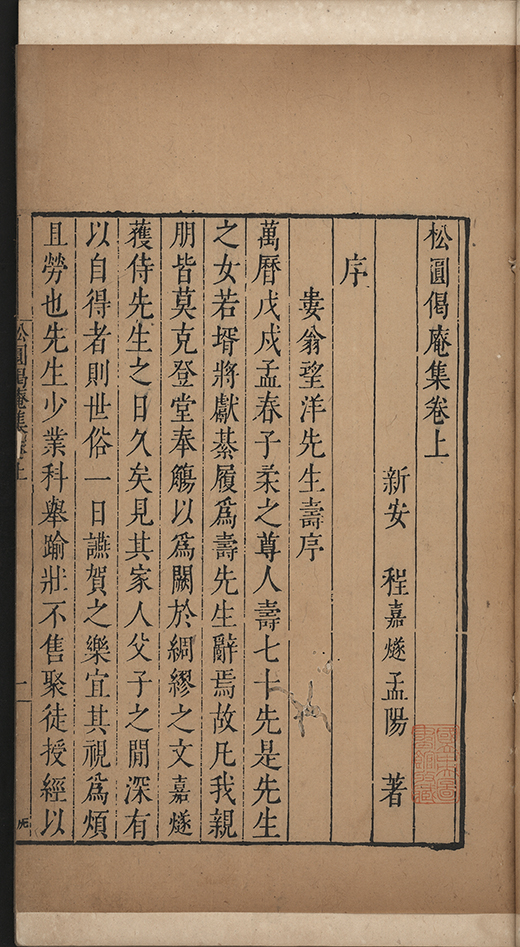 松圓偈庵集卷上
新安 程嘉燧孟陽 著
序
婁翁望洋先生壽序
萬曆戊戍孟春子柔之尊人壽七十先是先生
之女若壻將獻綦履爲壽先生辭焉故凡我親
朋皆莫克登堂奉觴以爲闕於綢繆之文嘉燧
獲侍先生之日久矣見其家人父子之閒深有
以自得者則世俗一日讌賀之樂宜其視爲煩
且勞也先生少業科舉踰壯不售聚徒授經以
松圓偈庵集卷上
一